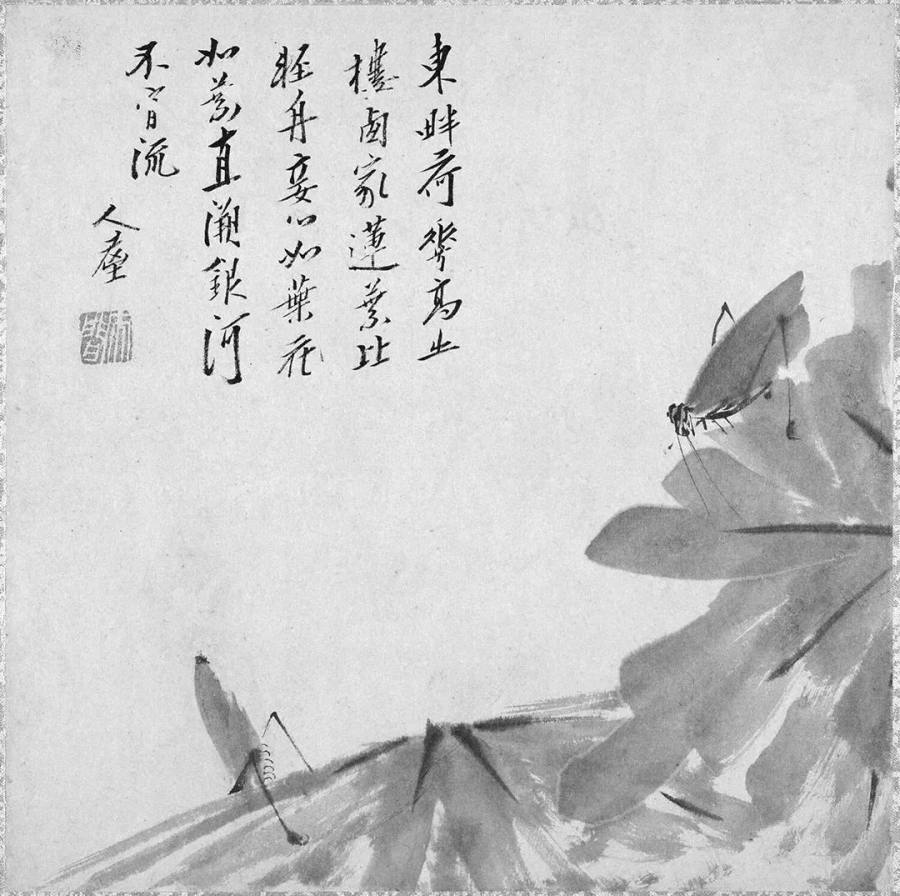 東畔荷花高出
樓西家蓮葉比
輕舟妾心如葉花
如葉直溯銀河
不肯流
人屋